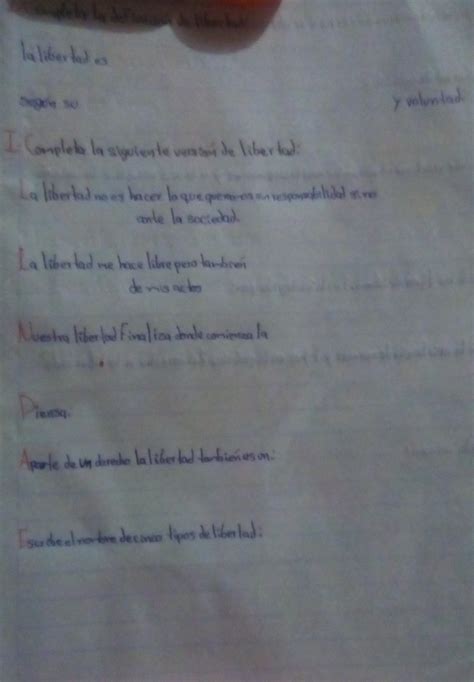 Completa la definición de libertad:
la libertad es
según su y voluntad.
I. Completa la siguiente versión de libertad:
La libertad no es hacer lo que queramos sin responsabilidad si no
ante la sociedad.
La libertad me hace libre pero también
de mis actos
Nuestra libertad finaliza donde comienza la
Piensa.
Aparte de un derecho la libertad también es un:
Escribe el nombre de cinco tipos de libertad: